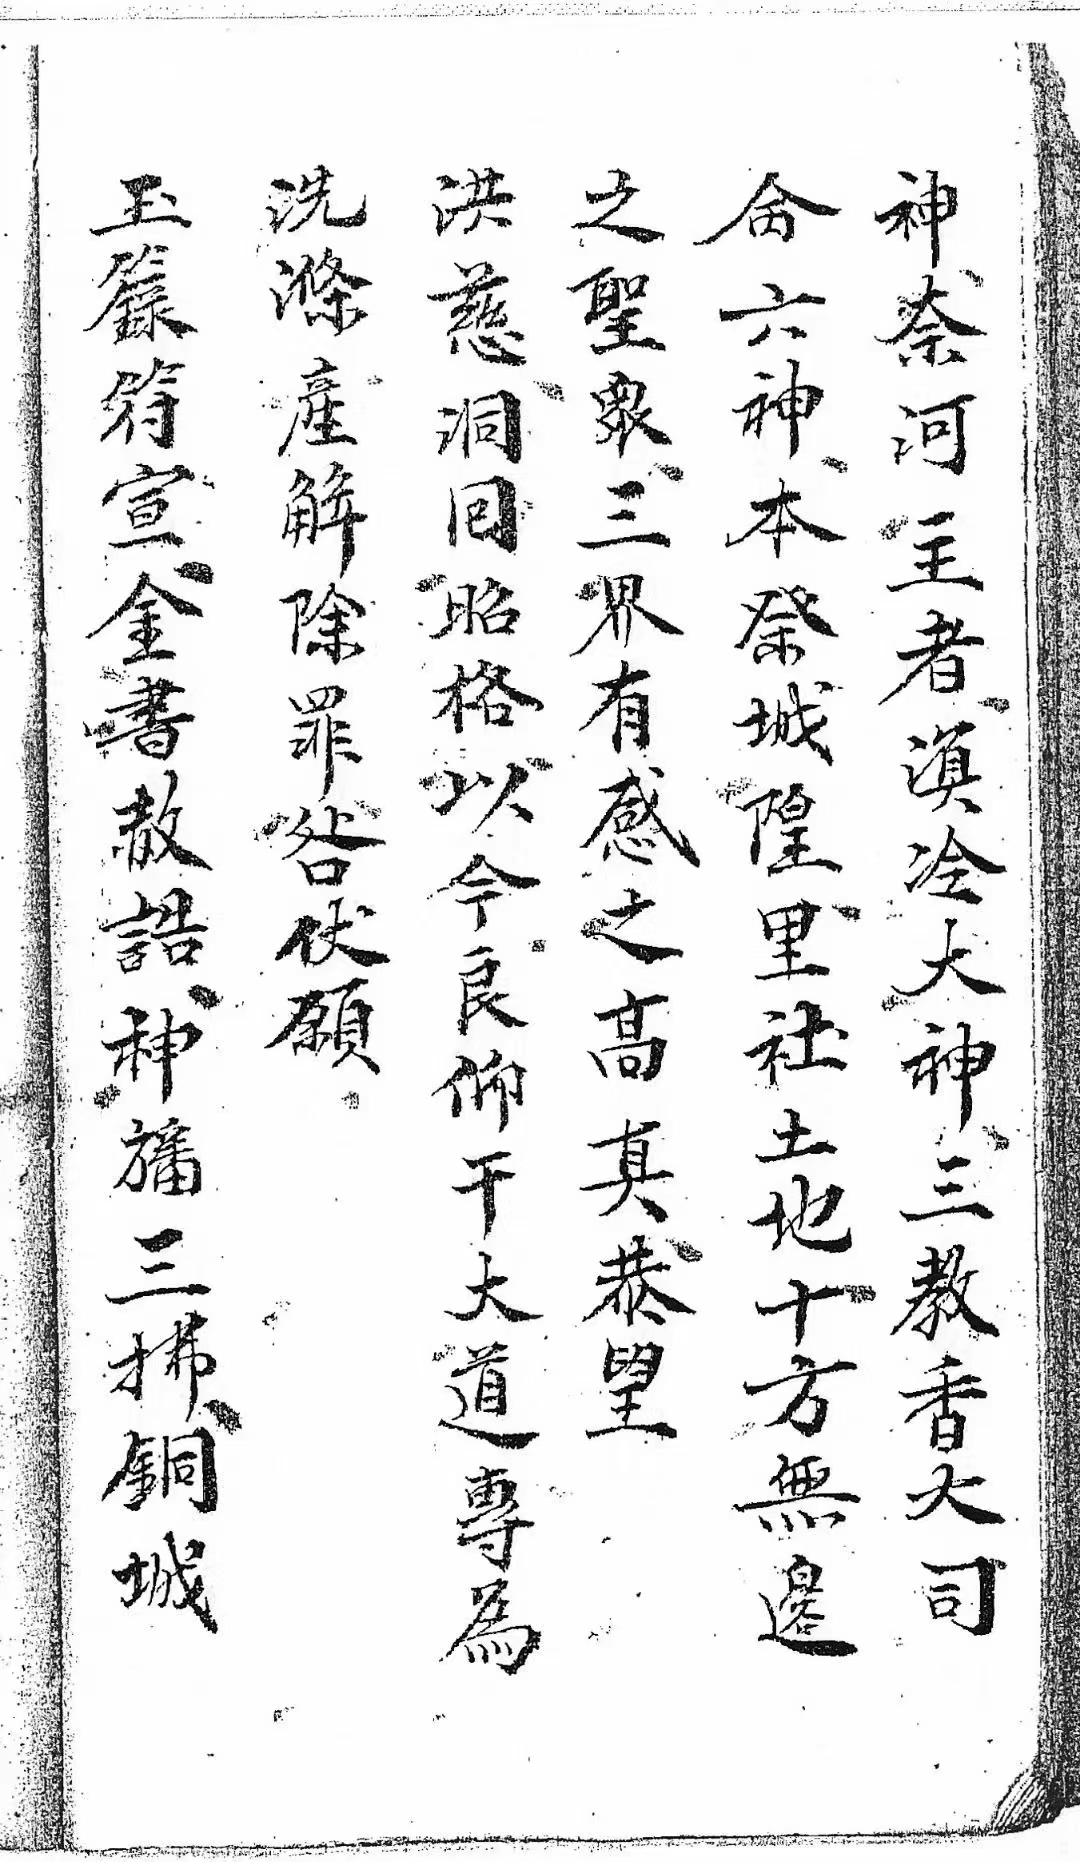 神、奈河主者、溟泠大神、三教香火司
命六神、本祭城隍里社土地十方無邊
之聖眾、三界有感之高真、恭望
洪慈洞回昭格以今良仰干大道專為
洗滌產解除罪咎伏願
玉籙符宣、金書赦誥、神旛三拂、銅城